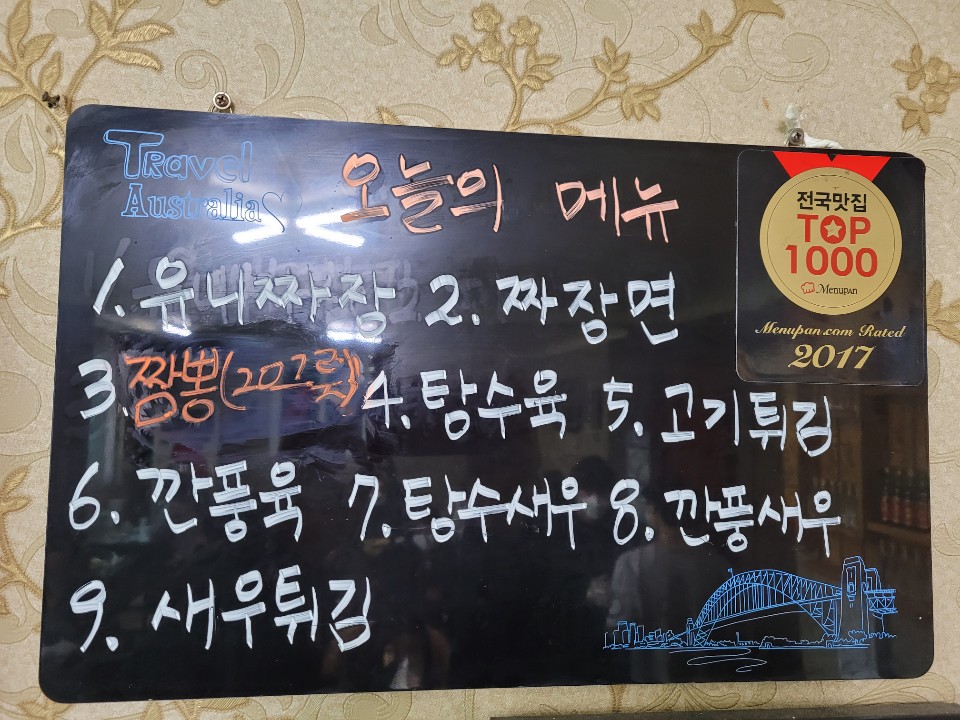 Travel
Australia
오늘의 메뉴
전국맛집
TOP
1000
Menupan
Menupan.com Rated
2017
1. 유니짜장 2. 짜장면
3. 짬뽕(20그릇) 4. 탕수육 5. 고기튀김
6. 깐풍육 7. 탕수새우 8. 깐풍새우
9. 새우튀김